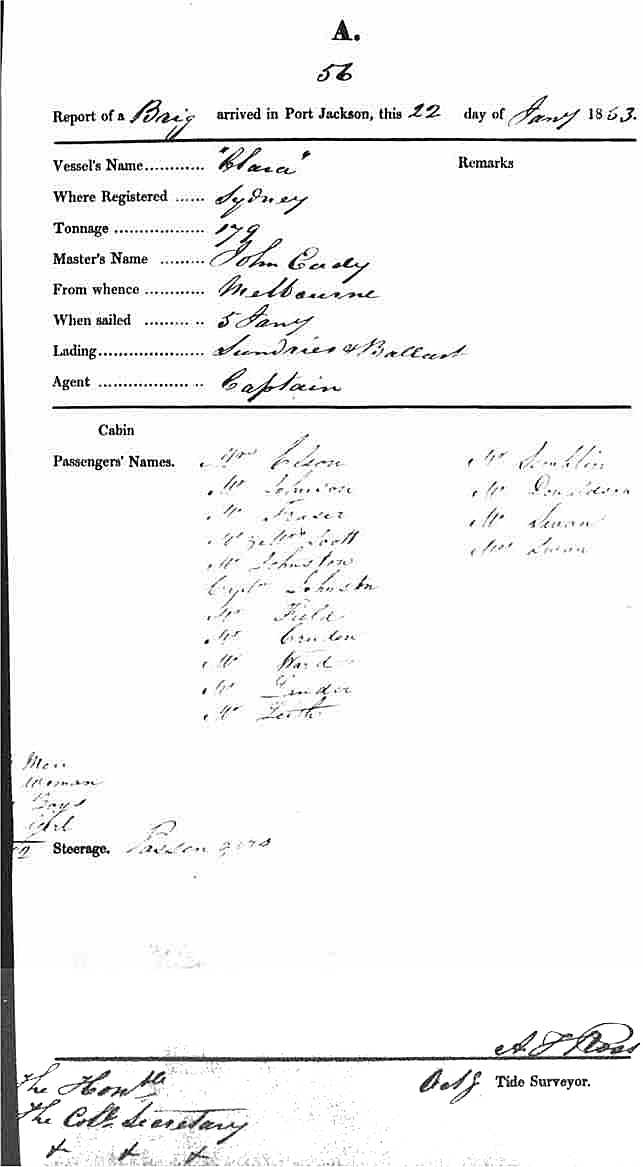 A.
56
Report of a Brig arrived in Port Jackson, this 22 day of Jany 1853.
Vessel's Name............ "Clara" Remarks
Where Registered ...... Sydney
Tonnage .................. 179
Master's Name ......... John Eady
From whence ............ Melbourne
When sailed ......... .. 5 Jany
Lading..................... Sundries & Ballast
Agent .................. .. Captain
Cabin
Passengers' Names. Elson Mr Tomblin
Mr Johnson Mr Donaldson
Mr Fraser Mr Swan
Mr & Mrs Scott Swan
Mr Johnston
Captn Johnston
Mr Field
Mr Cruden
Mr Ward
Mr
Mr Leith
Men
Woman
Boys
Girl
Steerage. Passengers
A F Ross
Actg Tide Surveyor.
The Honble
The Coll. Secretary
& & &